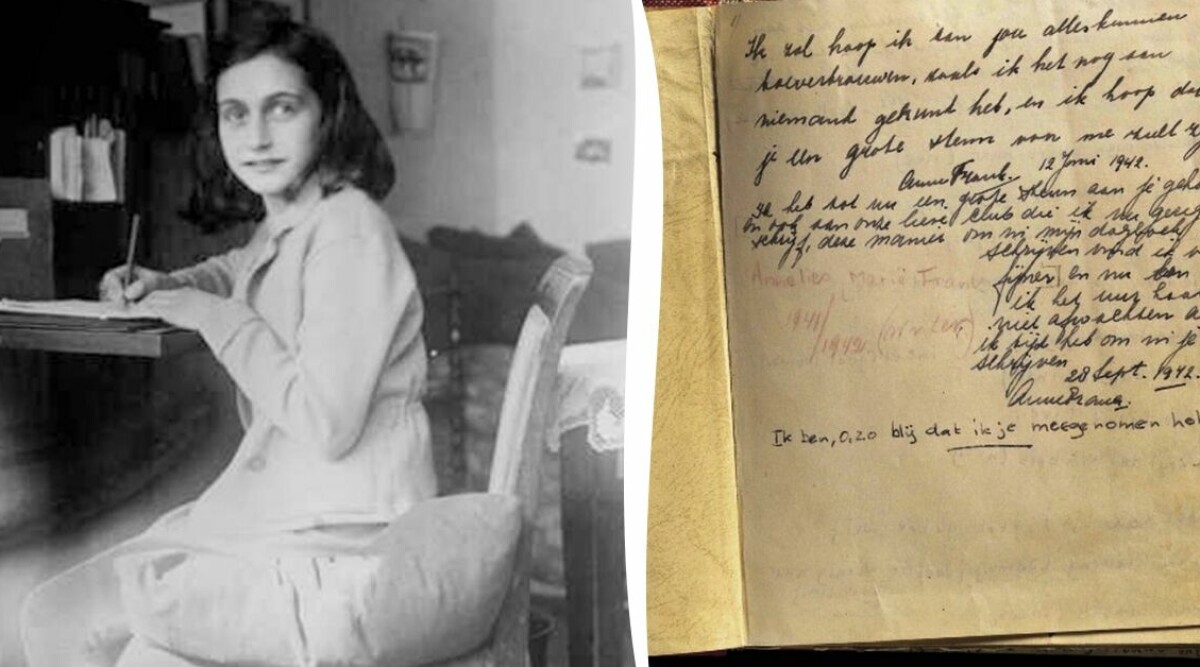 Ik zal hoop ik aan jou alles kunnen
toevertrouwen, zoals ik het nog aan
niemand gekund heb, en ik hoop da
je een grote steun van me zult z
Anne Frank. 12 Juni 1942.
Ik heb tot nu een grote steun aan je geh
en ook aan onze lieve club die ik nu gere
schrijf, deze manier om in mijn dagboek
schrijven vind ik v
fijner en nu
ik het uur haa
niet afwachten a
ik tijd heb om in je
schrijven
28 Sept. 1942.
Anne Frank.
Annelies Marie Frank
1941/
/1942
Ik ben, o, zo blij dat ik je meegenomen he